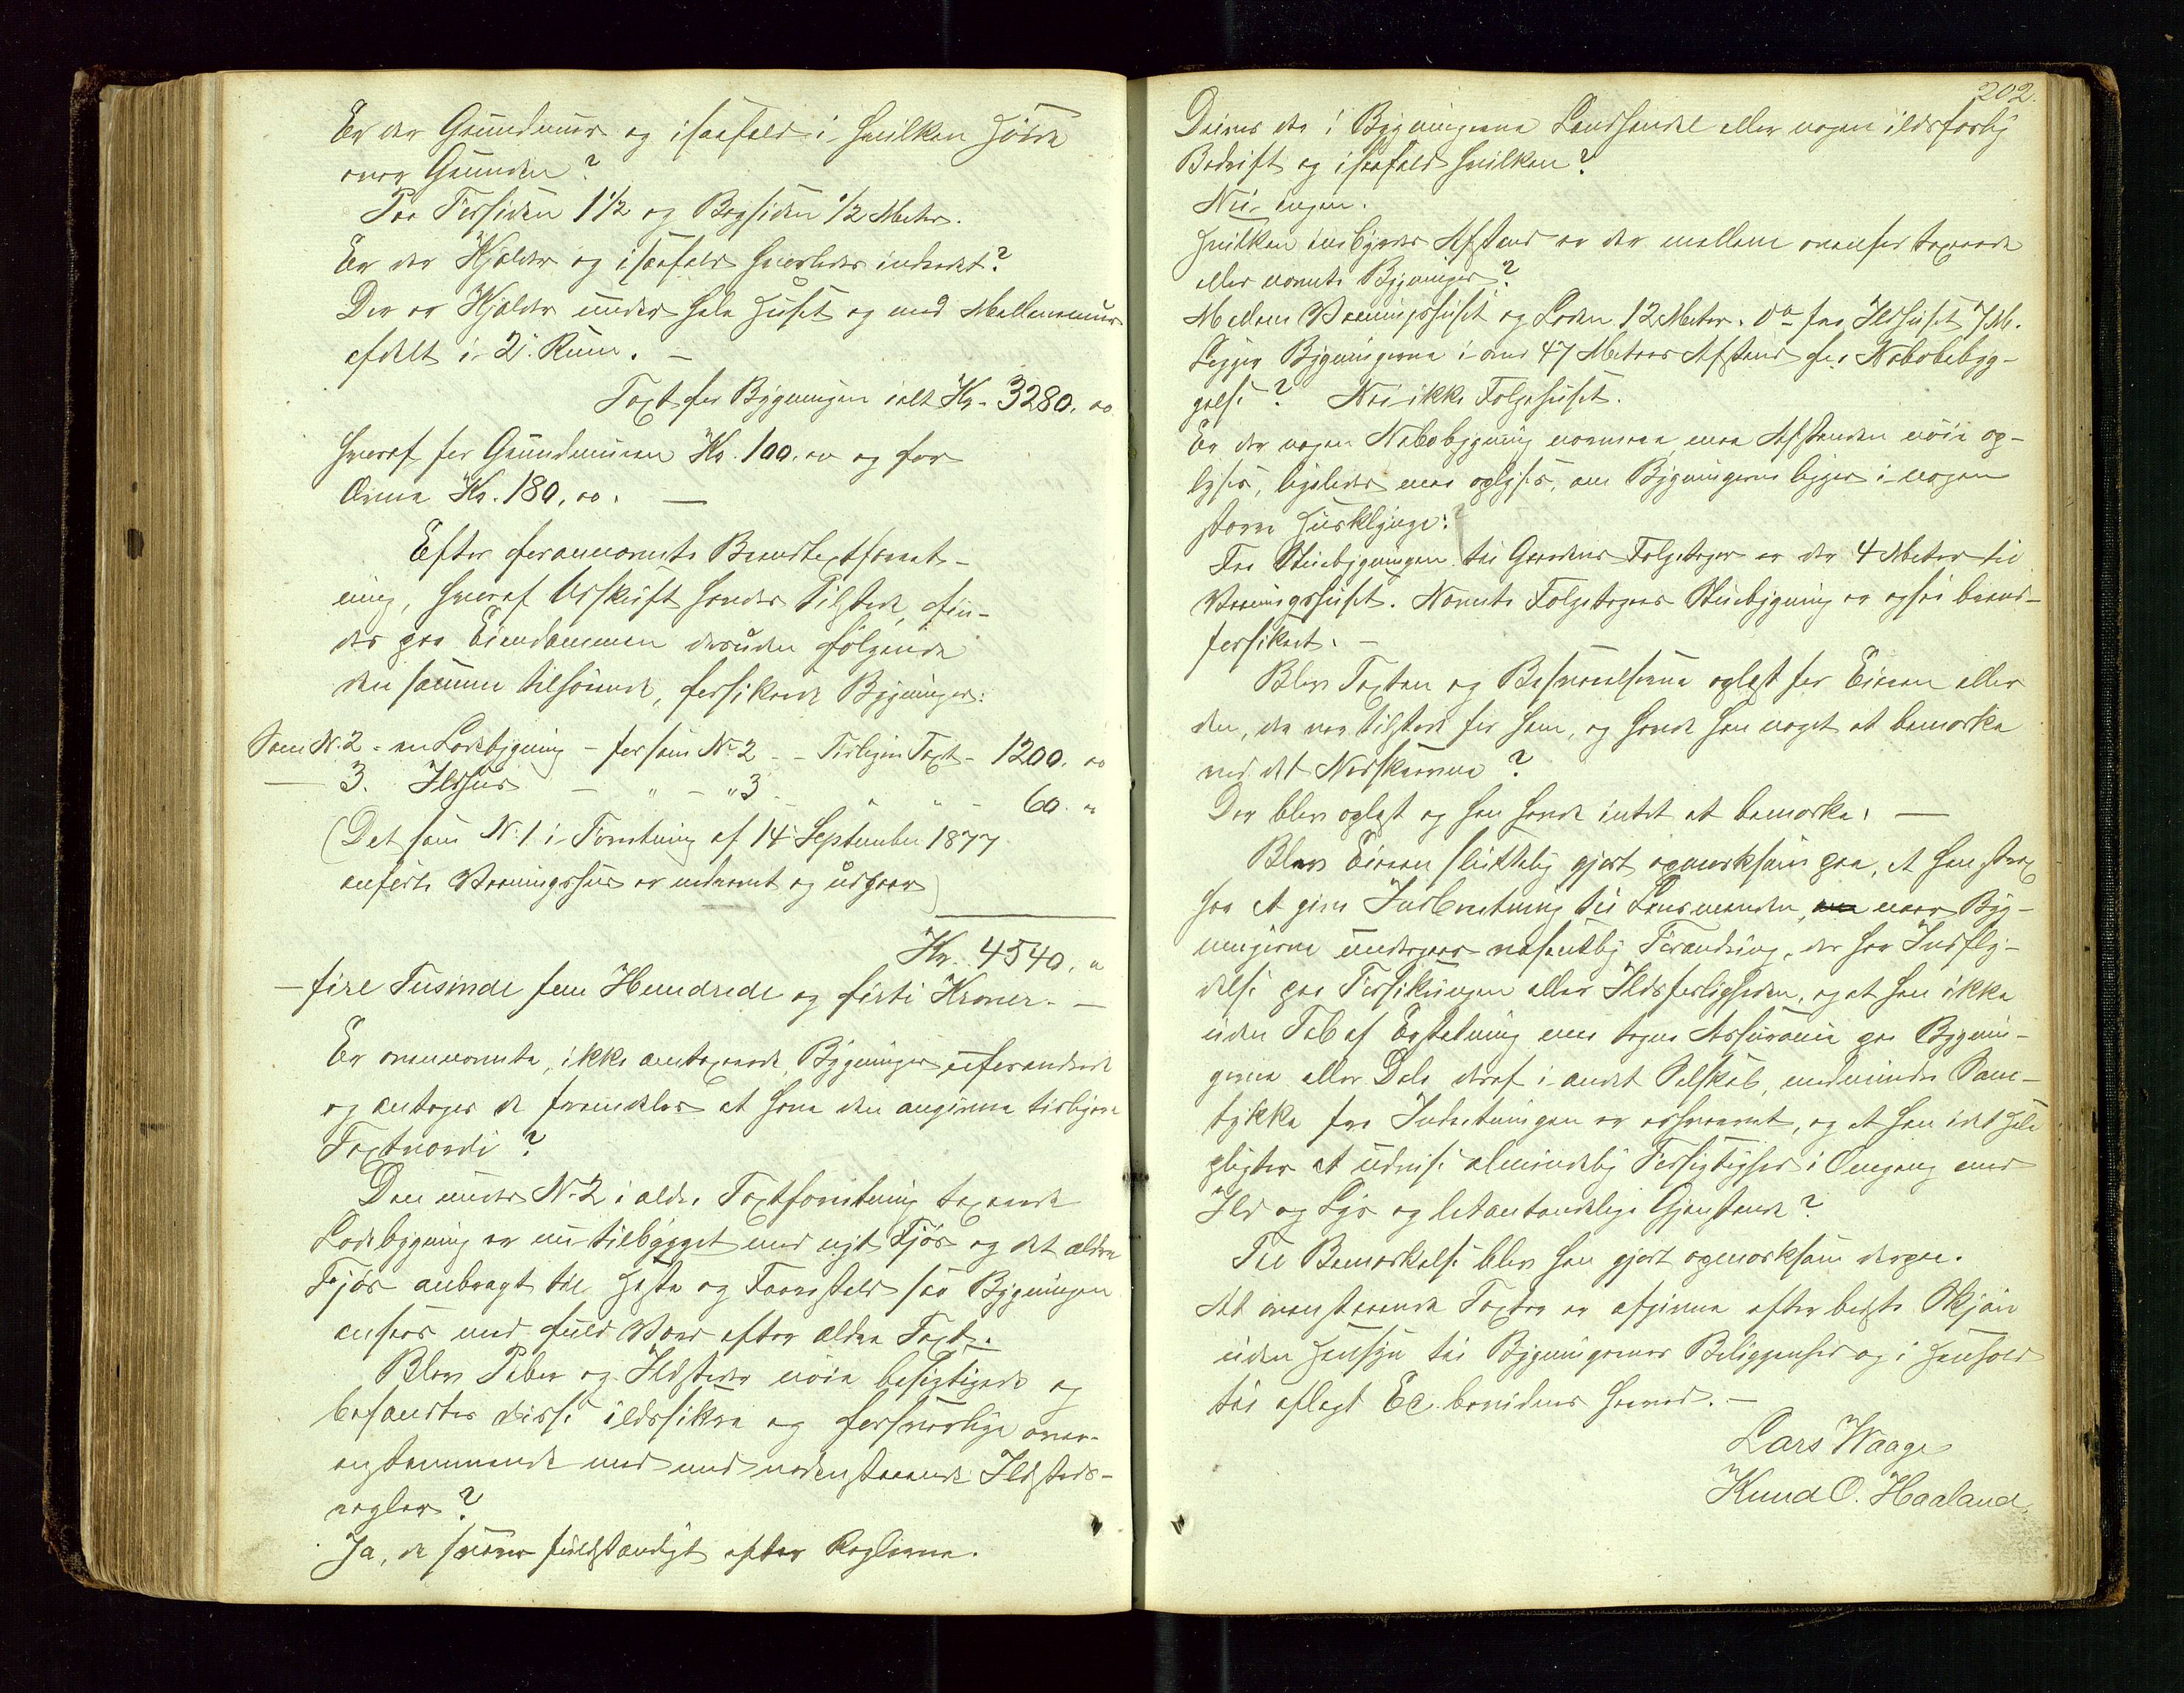 Er der Grundmur og isaafald i hvilken Høide
over Grunden?
Paa Forsiden 1 1/2 og Bagsiden 1/2 Meter.
Er der Kjelder og isaafald hvorledes indredet?
Der er Kjelder under hele Huset og med Mellemmur
afdelt i 2 Rum. —
Taxt for Bygningen ialt Kr. 3280. oo
hvoraf for Grundmuren Kr. 100. oo og for
Ovne Kr. 180, oo. —
Efter forannævnte Brandtaxtforret-
ning, hvoraf Udskrift havdes tilstede, fin-
des paa Eiendommen desuden følgende
den samme tilhørende, forsikrede Bygninger:
Som No. 2 - en Ladebygning - før som No 2 - - Tidligere Taxt - 1200. oo
— 3. Ildhus — " - " 3 - " " - 60. "
(Det som No. 1 i Forretning af 14 September 1877
anførte Vaaningshus er nedrevet og udgaar)
Kr. 4540. "
— fire Tusinde fem Hundrede og firti Kroner. —
Er ovennævnte, ikke omtaxerede Bygninger uforandrede
og antages de fremdeles at have den angivne tidligere
Taxtværdi?
Den under No 2 i ældre Taxtforretning taxerede
Ladebygning er nu tilbygget med nyt Fjøs og det ældre
Fjøs anbragt til Heste og Faarestald saa Bygningen
ansees med fuld Værd efter ældre Taxt.
Blev Piber og Ildsteder nøie besigtigede og
befandtes disse ildsikre og forsvarlige over-
ensstemmende med med nedenstaaende Ildsteds-
regler?
Ja, de svarer fuldstændigt efter Reglerne.
202.
Drives der i Bygningerne Landhandel eller nogen ildsfarlig
Bedrift og isaafald hvilken?
Nei ingen.
Hvilken indbyrdes Afstand er der mellem ovenfor taxerede
eller nævnte Bygninger?
Mellem Vaaningshuset og Laden 12 Meter. Do fra Ildhuset 7 M.
Ligger Bygningerne i over 47 Meters Afstand fra Nabobebyg-
gelse? Nei ikke Folgehuset.
Er der nogen Nabobygning nærmere, maa Afstanden nøie op-
lyses, ligeledes maa oplyses, om Bygningerne ligger i nogen
større Husklynge:
Fra Stuebygningen til Gaardens Folgetager er der 4 Meter til
Vaaningshuset. Nævnte Folgetagers Stuebygning er også brand-
forsikret. —
Blev Taxten og Besvarelserne oplæst for Eieren eller
den, der var tilstede for ham, og havde han noget at bemærke
ved det Nedskrevne?
Der blev oplæst og han havde intet at bemærke. —
Blev Eieren slutteligt gjort opmærksom paa, at han strax
har at give Indberetning til Lensmanden, naar Byg-
ningerne undergaar væsentlig Forandring, der har Indfly-
delse paa Forsikringen eller Ildsfarligheden, og at han ikke
uden Tab af Erstatning maa tegne Assurance paa Bygnin-
gerne eller Dele deraf i andet Selskab, medmindre Sam-
tykke fra Indretningen er erhvervet, og at han i det Hele
pligter at udvise almindelig Forsigtighed i Omgang med
Ild og Lys og letantændelige Gjenstande?
Til Bemærkelse blev han gjort opmærksom derpaa.
At ovenstaaende Taxter er afgivne efter bedste Skjøn
uden Hensyn til Bygningernes Beliggenhed og i Henhold
til aflagt Ed bevidnes herved. —
Lars Waage
Knud O. Haaland